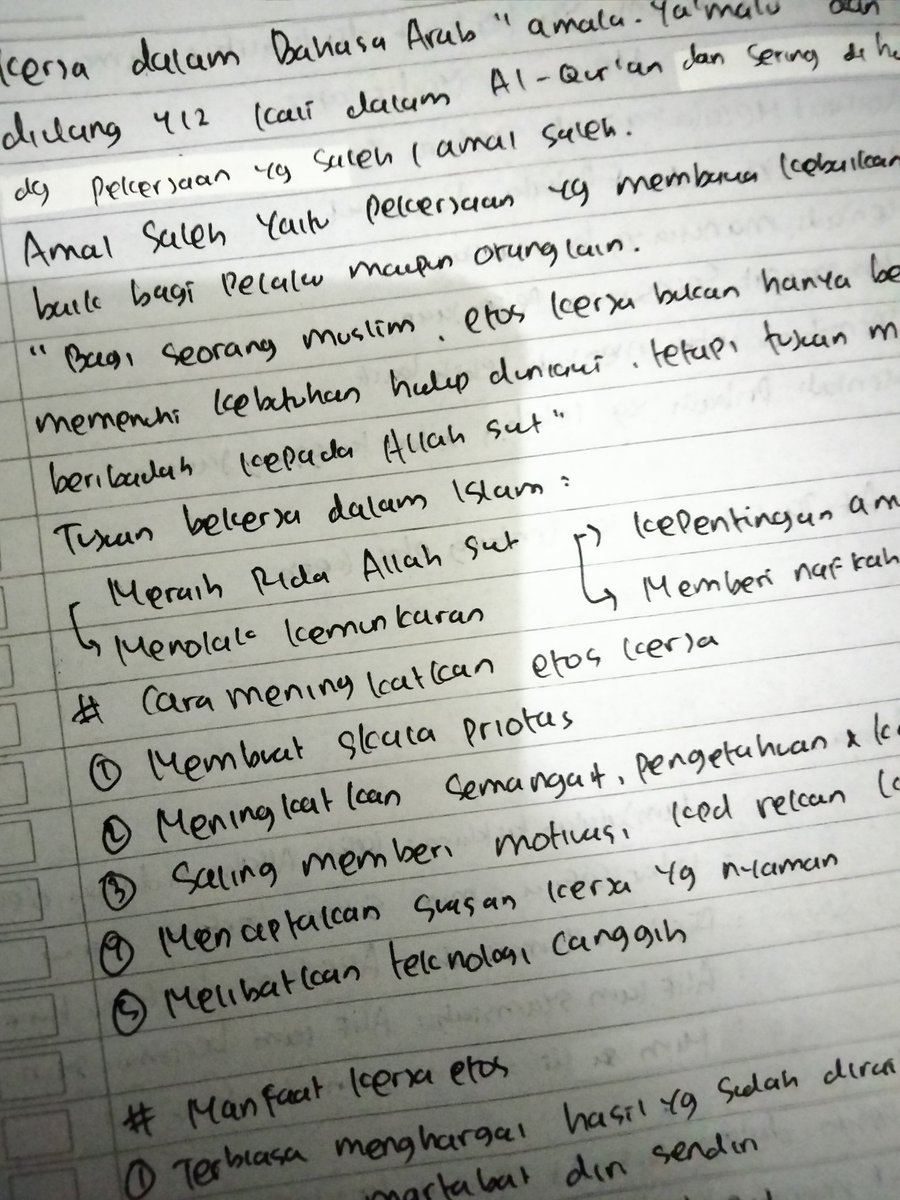 kerja dalam Bahasa Arab "amala. Ya'malu dan
diulang 412 kali dalam Al-Qur'an dan sering di hu
dg pekerjaan yg saleh (amal saleh.
Amal saleh yaitu pekerjaan yg membawa kebaikan
baik bagi pelaku maupun orang lain.
"Bagi seorang muslim, etos kerja bukan hanya be
memenuhi kebutuhan hidup duniawi, tetapi tujuan m
beribadah kepada Allah swt"
Tujuan bekerja dalam Islam:
Meraih Rida Allah swt → kepentingan am
↳ Menolak kemunkaran ↳ Memberi nafkah
# Cara meningkatkan etos kerja
① Membuat skala priotas
② Meningkatkan semangat, pengetahuan &
③ Saling memberi motivasi kpd rekan
④ Menciptakan suasan kerja yg nyaman
⑤ Melibatkan teknologi canggih
# Manfaat kerja etos
① Terbiasa menghargai hasil yg sudah dirai
martabat diri sendiri